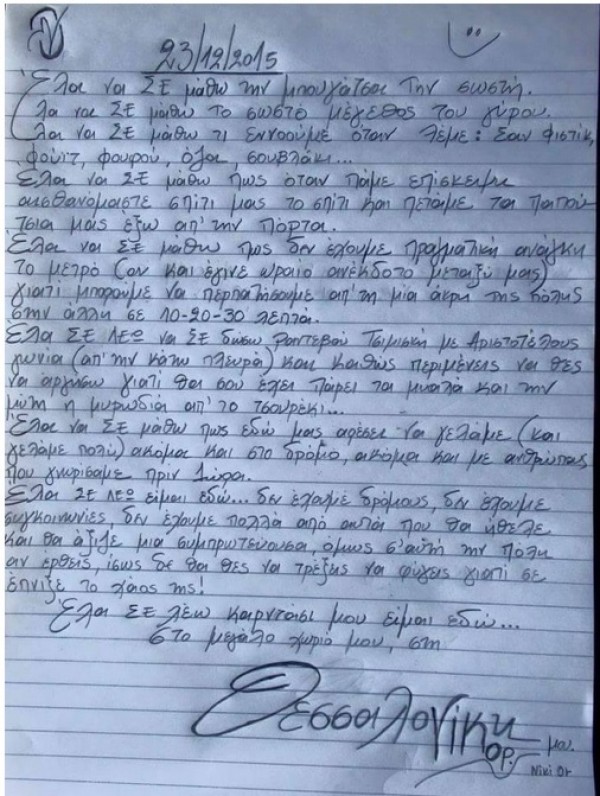 23/12/2015
Έλα να ΣΕ μάθω την μπουγάτσα την σωστή.
Έλα να ΣΕ μάθω το σωστό μέγεθος του γύρου.
Έλα να ΣΕ μάθω τι εννοούμε όταν λέμε: Σαν φιστίκ,
φουιτ, φουρού, όλα, σουβλάκι...
Έλα να ΣΕ μάθω πως όταν πάμε επίσκεψη
αισθανόμαστε σπίτι μας το σπίτι και πετάμε τα παπού
τσια μας έξω απ' την πόρτα.
Έλα να ΣΕ μάθω πως δεν έχουμε πραγματική ανάγκη
το μετρό (αν και έγινε ωραίο ανέκδοτο μεταξύ μας)
γιατί μπορούμε να περπατήσουμε απ' τη μία άκρη της πόλης
στην άλλη σε 10-20-30 λεπτά.
Έλα ΣΕ ΛΕΩ να ΣΕ δώσω ραντεβού Τσιμισκή με Αριστοτέλους
γωνία (απ' την κάτω πλευρά) και καθώς περιμένεις να θες
να αργήσω γιατί θα σου έχει πάρει τα μυαλά και την
μύτη η μυρωδιά απ' το τσουρέκι...
Έλα να ΣΕ μάθω πως εδώ μας αρέσει να γελάμε (και
γελάμε πολύ) ακόμα και στο δρόμο, ακόμα και με ανθρώπους
που γνωρίσαμε πριν 1 ώρα.
Έλα ΣΕ ΛΕΩ είμαι εδώ... δεν έχουμε δρόμους, δεν έχουμε
συγκοινωνίες, δεν έχουμε πολλά από αυτά που θα ήθελε
και θα άξιζε μια συμπρωτεύουσα, όμως σ' αυτή την πόλη
αν έρθεις, ίσως δε θα θες να τρέξεις να φύγεις γιατί σε
έπνιξε το χάος της!
Έλα ΣΕ λέω καρντάσι μου είμαι εδώ...
στο μεγάλο χωριό μου, στη
Θεσσαλονίκη
μου.
ΟΡ.
Niki Or